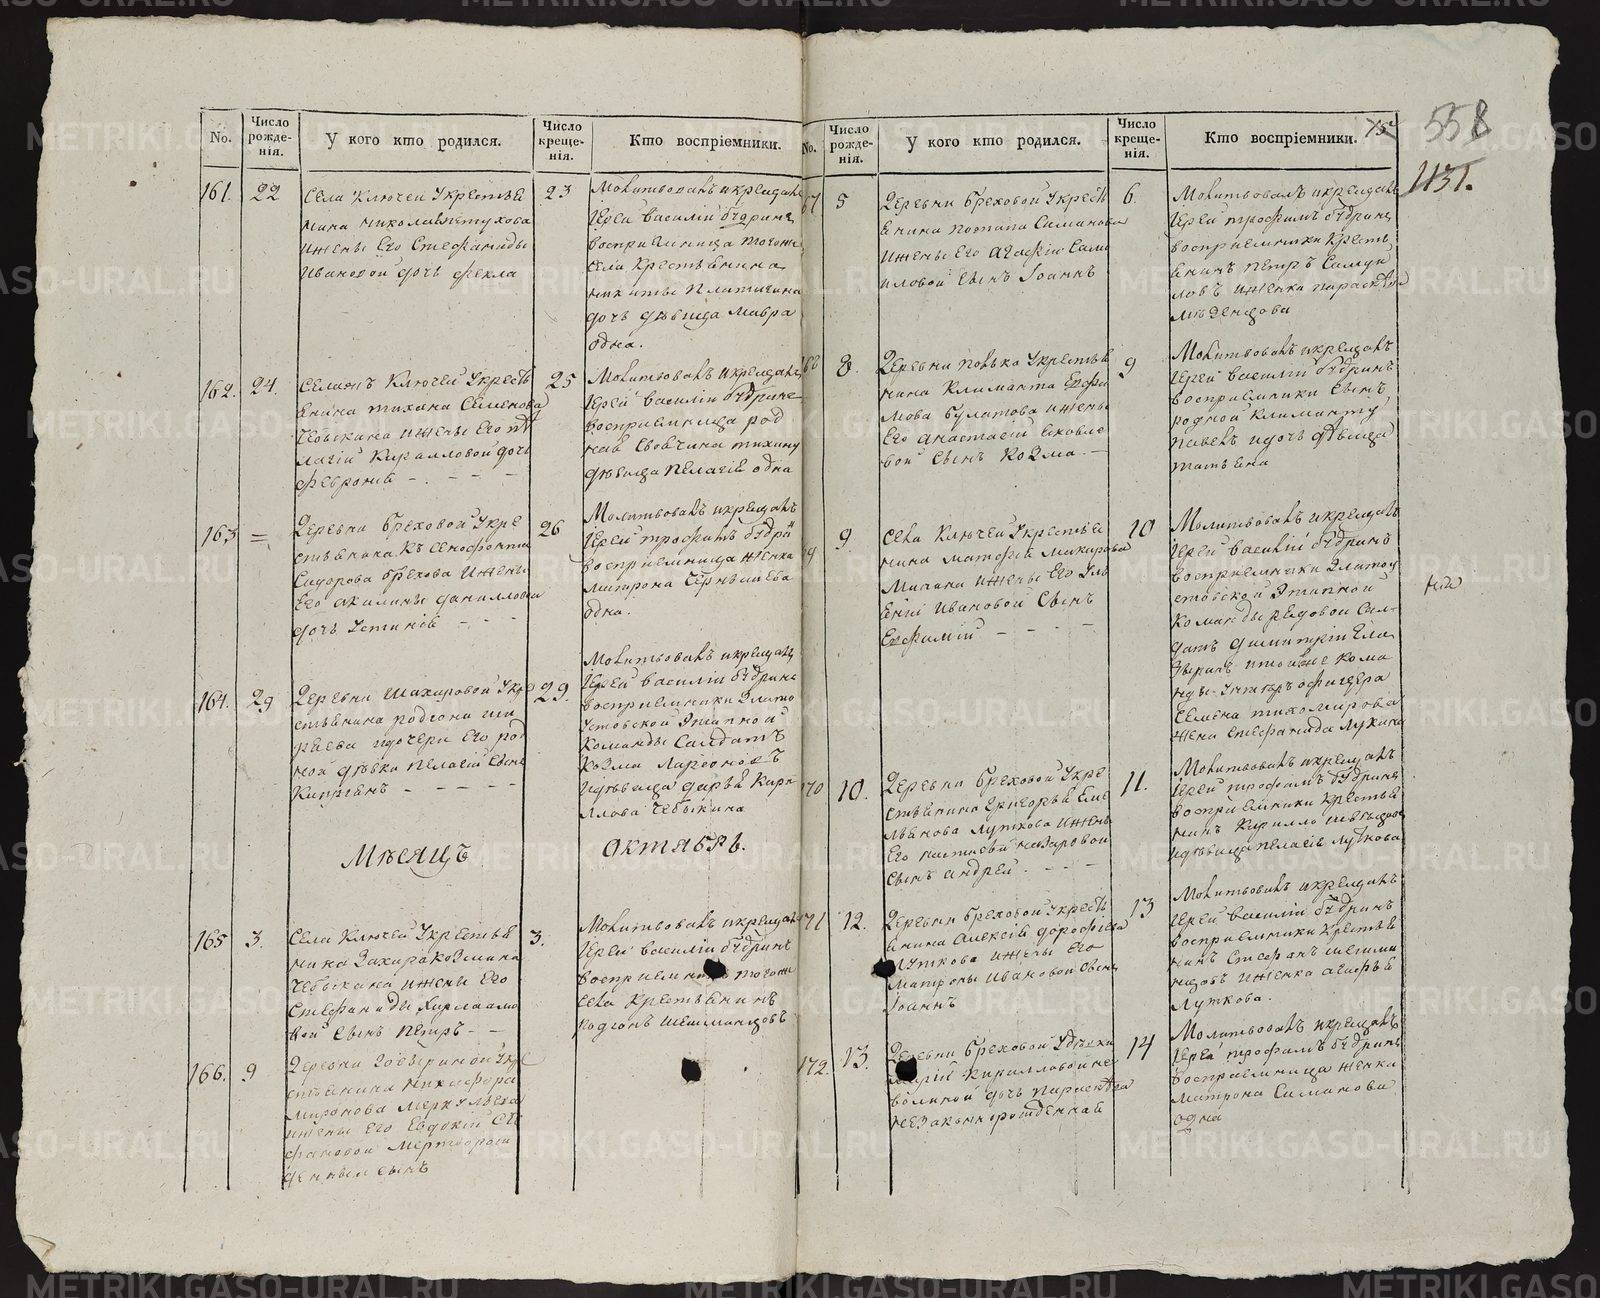 No.
Число рожде-нія.
У кого кто родился.
Число креще-нія.
Кто воспріемники.
161. 22
Села Ключей Укрестья
нина николая петухова
ижены Его Стефаниды
Ивановой дочь фекла
23
Молитвовалъ икрещалъ
Іерей василій будринъ
восприемница тогоже
села Крестьянина
никиты Платыгина
дочь девица Мавра
одна.
162. 24.
Ключей Укресть
янина тихана Семенова
Чебыкина ижены Его пе
лагіи Кириловой дочь
феврониѣ
25
Молитвовалъ икрещалъ
Іерей василій будринъ
восприемница род
тихину
девица Пелагіѣ одна
163 =
Деревни бреховой Укре
стьянина Ксенофонта
Сидорова брехова ижены
Его акилины даниловой
дочь Устиніѣ
26
Молитвовалъ икрещалъ
Іерей трофимъ будри
восприемница женка
матрона Чернышева
одна.
164. 29
Деревни шахировой Укре
стьянина родиона
идочери Его род
ной девки пелагіи сынъ
Киприянъ
29.
Молитвовалъ икрещалъ
Іерей василій будринъ
восприемники Злато
устовской Этапной
Команды Салдатъ
Козма Ларионовъ
идевица дарья Кири
лова Чебыкина
Мѣсяцъ
октябрь.
165 3.
Села Ключей Укрестья
нина Захара козмина
Чебыкина ижены Его
Стефаниды Харлампо
вой сынъ Петръ
3.
Молитвовалъ икрещалъ
Іерей василій будринъ
восприемникъ тогоже
села Крестьянинъ
родионъ шешминцовъ
166. 9
Деревни Укре
стьянина никифора
миронова меркульева
ижены Его Евдокіи Сте
фановой Мертворож
денный сынъ
No.
Число рожде-нія.
У кого кто родился.
Число креще-нія.
Кто воспріемники.
558
1131.
67 5
Деревни бреховой Укресть
янина потапа Симанова
ижены Его агафіи Само
иловой сынъ Іоаннъ
6.
Молитвовалъ икрещалъ
Іерей трофимъ будринъ
восприемники Кресть
янинъ петръ Самои
ловъ иженка параскева
меденцова
168 8.
Деревни Укрестья
нина Климанта Ерфи
мова булатова ижены
Его анастасіи яковле
вой сынъ Козма.
9
Молитвовалъ икрещалъ
Іерей василій будринъ
восприемники сынъ
родной Климанту
павелъ идочь девица
татьяна
9 9.
Села Ключей Укрестья
нина матфея макарова
ижены Его Уль
яніи Ивановой сынъ
Ерфимій
10
Молитвовалъ икрещалъ
Іерей василій будринъ
восприемники Златоу
стовской Этапной
Команды рядовой Сал-
датъ димитрій Ела
Кома
нды унтеръ офицера
Семена тихомирова
жена стефанида Лукина
170 10.
Деревни бреховой Укре
стьянина Григорья Еме
льянова луткова ижены
Его назаровой
сынъ андрей
11.
Молитвовалъ икрещалъ
Іерей трофимъ будринъ
восприемники Крестья
нинъ Кирилло
идевица пелагія луткова
171 12.
Деревни бреховой Укресть
янина алексія дорофеева
луткова ижены Его
матроны Ивановой сынъ
Іоаннъ
13
Молитвовалъ икрещалъ
Іерей василій будринъ
восприемники Крестья
нинъ Стефанъ шешми
нцовъ иженка агафья
луткова.
172. 13.
Деревни бреховой Удевки
маріи Кириловой
дочь параскева
незаконнорожденная
14
Молитвовалъ икрещалъ
Іерей трофимъ будринъ
восприемница женка
матрона Симанова
одна
METRIKI.GASO-URAL.RU